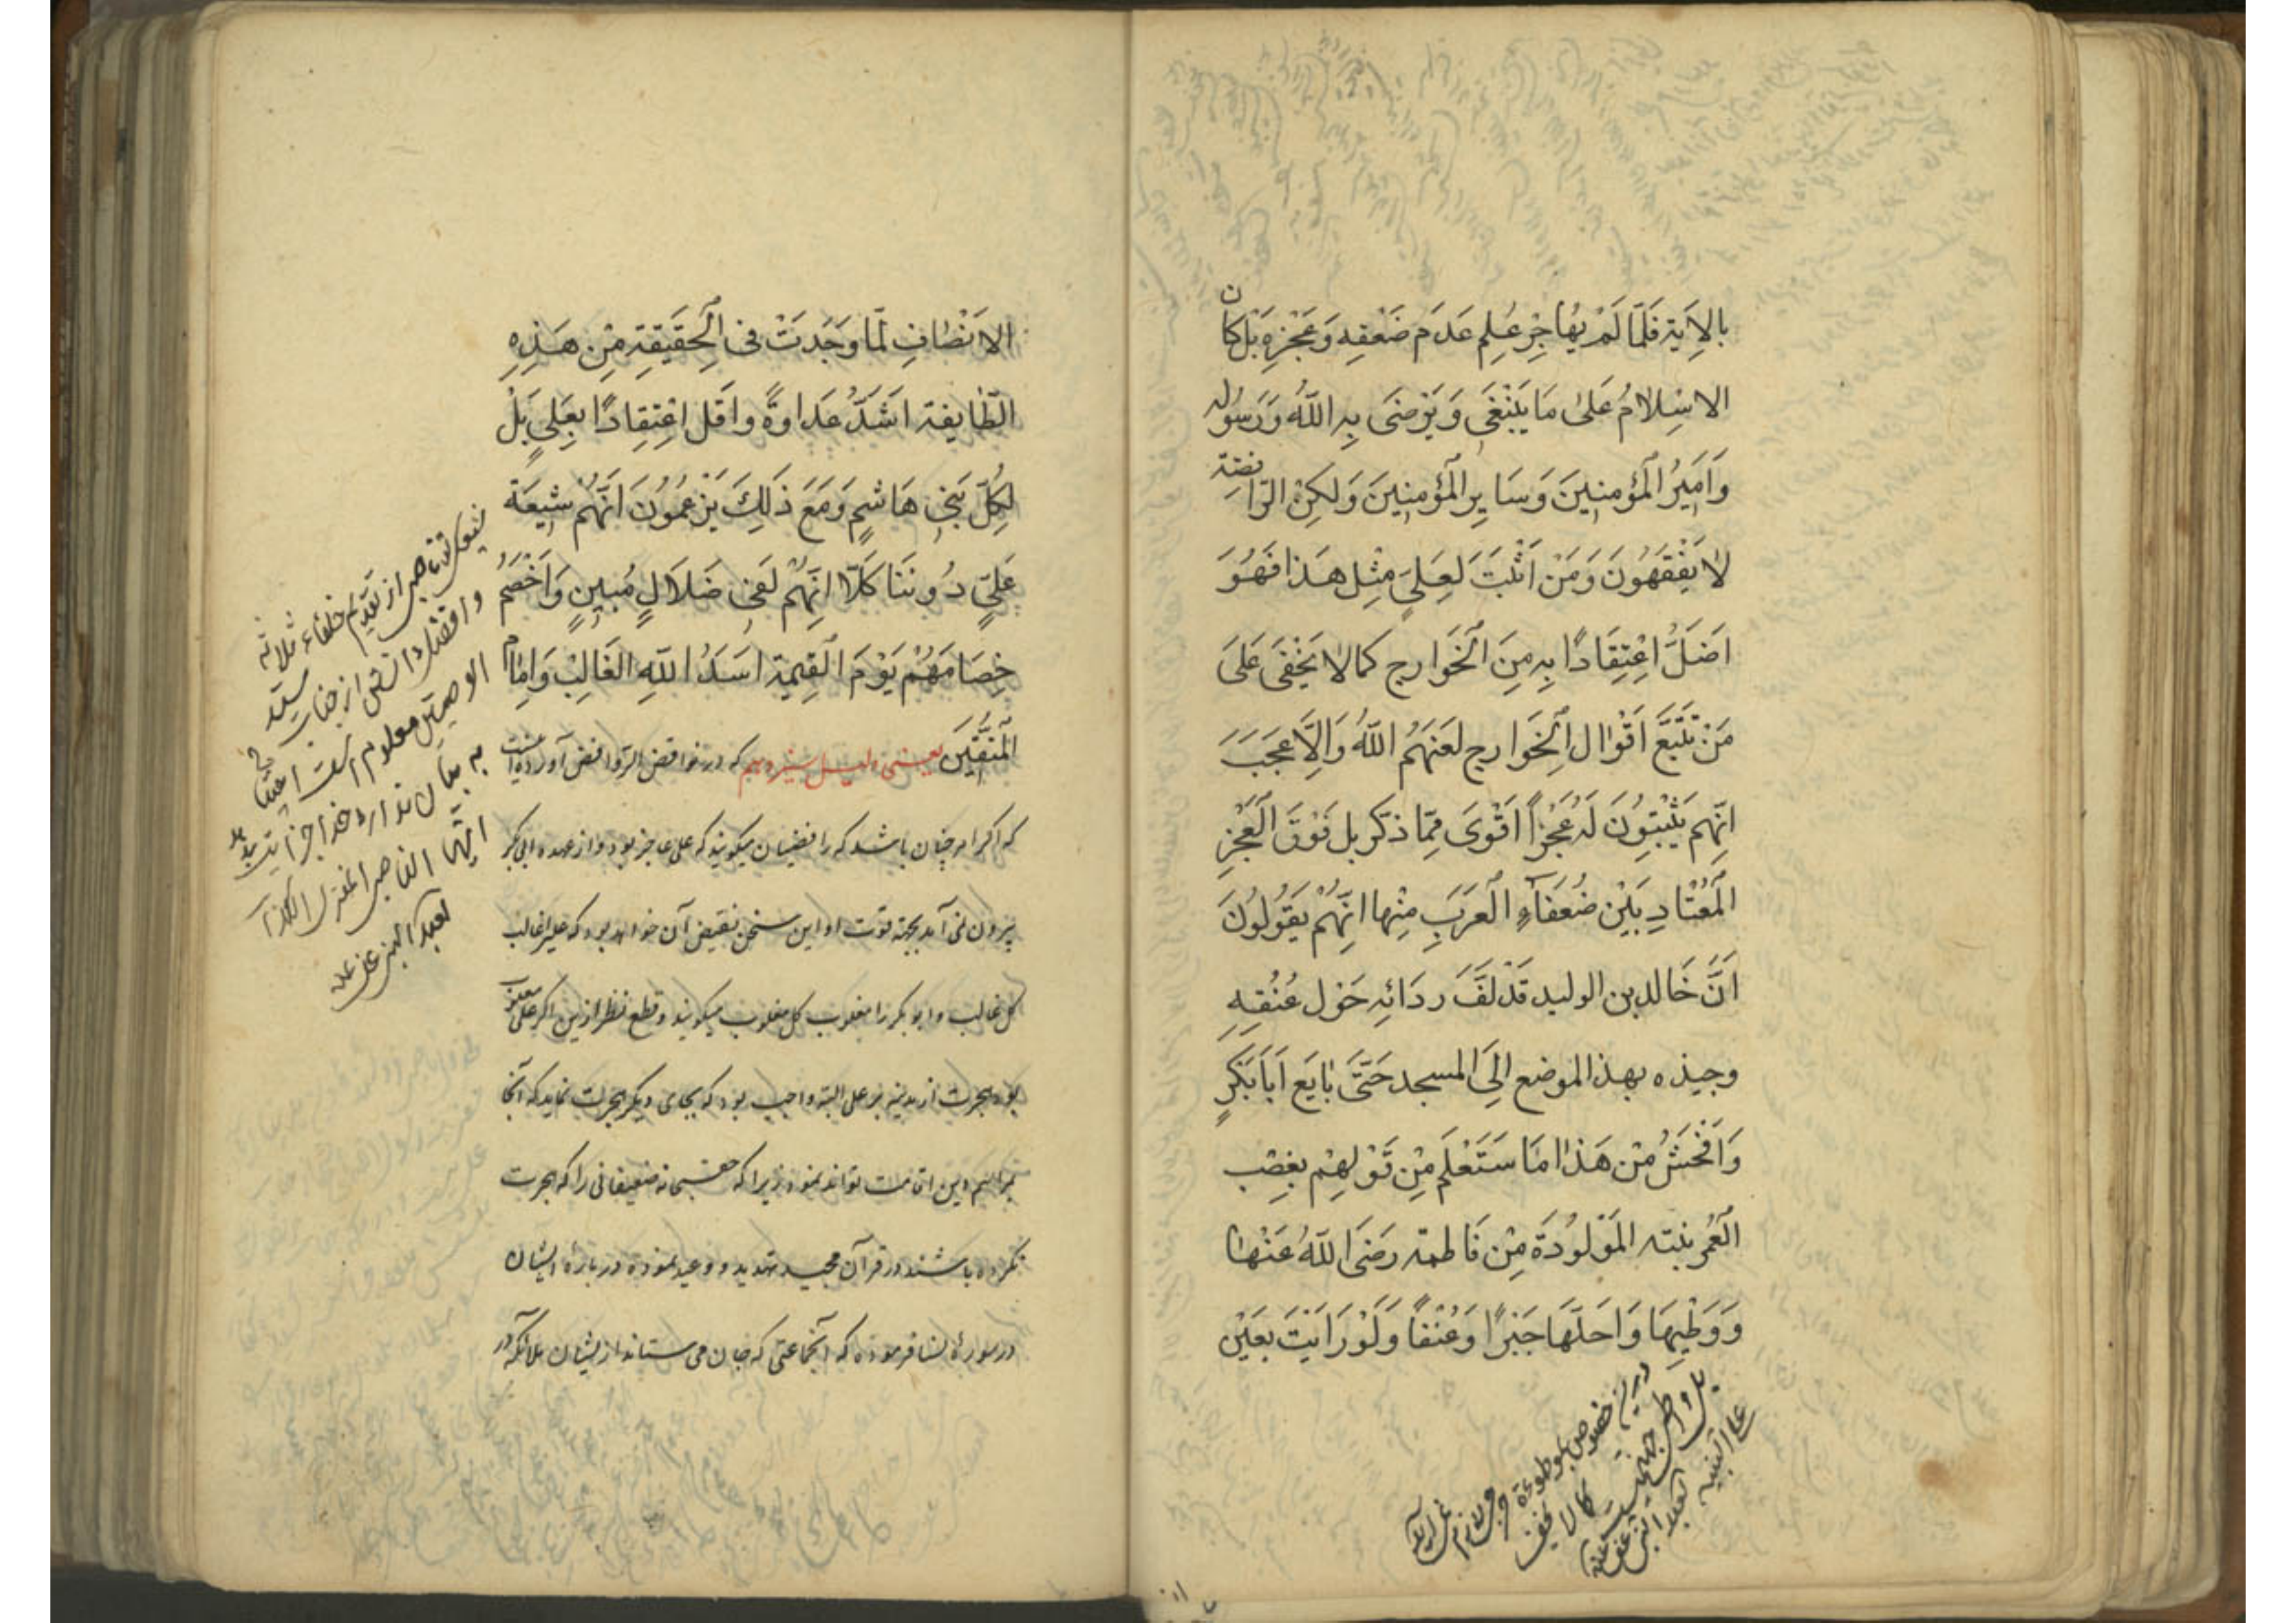 بالاية فلما لم يهاجر علم عدم ضعفه وعجزه بل كان
الاسلام على ما ينبغي ويرضى به الله ورسوله
وامير المؤمنين وساير المؤمنين ولكن الرافضة
لا يفقهون ومن اثبت لعلي مثل هذا فهو
اضل اعتقادا به من الخوارج كما لا يخفى على
من تتبع اقوال الخوارج لعنهم الله والا عجب
انهم يثبتون له عجزا اقوى مما ذكر بل فوق العجز
المعتاد بين ضعفاء العرب منها انهم يقولون
ان خالد بن الوليد قد لف ردائه حول عنقه
وجبذه بهذ الموضع الى المسجد حتى بايع ابا بكر
وافحش من هذا ما ستعلم من قولهم بغصب
العمر بنته المولودة من فاطمة رضى الله عنها
ووطيها واحلها جبرا وعنفا ولو رايت بعين
درين خصوص
كما لا يخفى
الانصاف لما وجدت في الحقيقة من هذه
الطايفة اشد عداوة واقل اعتقادا بعلي بل
لكل بني هاشم ومع ذلك يزعمون انهم شيعة
علي دوننا كلا انهم لفي ضلال مبين واخصم
خصامهم يوم القيمة اسد الله الغالب وامام
المتقين يعنى دليل سيزدهم كه در نواقض الروافض آورده اينست
كه اكر امر چنان باشد كه رافضيان ميكويند كه على عاجز بود واز عهده ابي بكر
برون نمى آمد بجهة قوت او اين سخن نقيض آن خواهد بود كه على را غالب
كل غالب وابو بكر را مغلوب كل مغلوب ميكويند وقطع نظر ازين اكر على ضعيف
بود هجرت از مدينه بر على البته واجب بود كه بجاى ديكر هجرت نمايد كه آنجا
مراسم دين اقامت تواند نمود زيرا كه حقسبحانه ضعيفانى را كه هجرت
نكرده باشند در قرآن مجيد تهديد و وعيد نموده در باره ايشان
در سوره نسا فرموده كه آنجماعتى كه جان مى ستاند ازيشان ملائكه در
از تقديم خلفاء ثلاثه
معلوم است